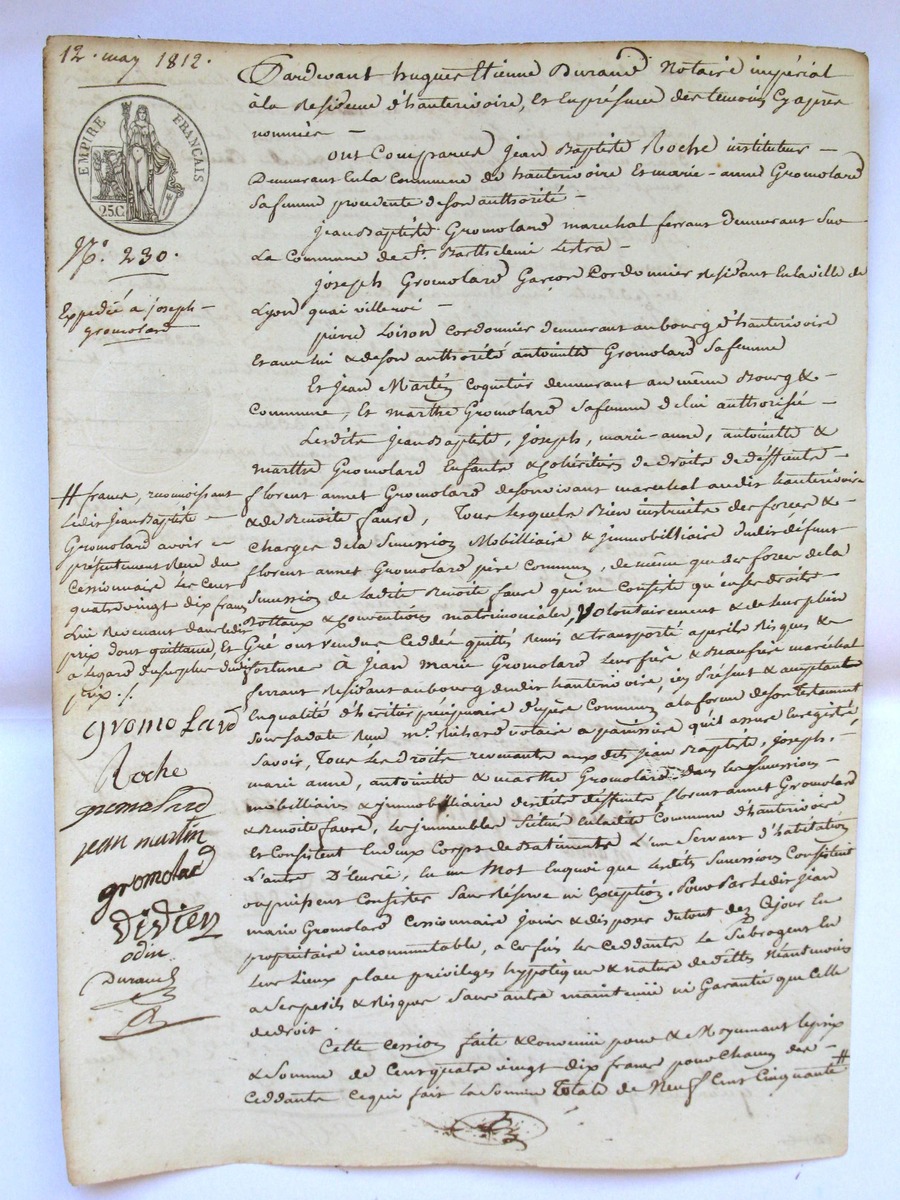 12. may 1812.
EMPIRE FRANÇAIS
25.C.
N.º 230.
Expediée a joseph
gromolard
Pardevant hugues Etienne Durand Notaire impérial
à la Residence d'hauterivoire, et en présence des temoins Cy après
nommés —
ont Comparus jean Baptiste Roche instituteur —
Demeurant en la Commune de hauterivoire et marie-anne Gromolard
sa femme procedente de son authorité —
jean Baptiste Gromolard marechal ferrant demeurant sur
La Commune de St. Barthelemi Lestra —
joseph Gromolard Garçon Cordonnier residant en la ville de
Lyon quai villeroi —
pierre Loison Cordonnier demeurant au bourg d'hauterivoire
et avec lui & de son authorité antoinette Gromolard sa femme
Et jean Martin Coquetier demeurant au même Bourg & —
Commune, et marthe Gromolard sa femme de lui authorisée —
Lesdits jean Baptiste, joseph, marie-anne, antoinette &
marthe Gromolard Enfants & Cohéritiers de droits de deffunts —
florent annet Gromolard de son vivant marechal audit hauterivoire
& de Benoite faure, Tous lesquels Bien instruits des forces & —
Charges de la Succession Mobilliaire & jmmobilliaire dudit défunt
florent annet Gromolard père Commun, de même que des forces de la
Succession de ladite Benoite faure qui ne Consiste qu'en ses droits
Dottaux & Conventions matrimoniales, Volontairement & de leur plein
Gré ont vendus, Ceddés quittés Remis & transporté a perils Risques &
fortune A Jean Marie Gromolard Leur frère & Beaufrère maréchal
ferrant Residant au bourg dudit hauterivoire, icy Présent & acceptant
En qualité d'héritier précipuaire du père Commun à la forme de son testament
sous sa date Reçu me. Richard notaire a panissiere qu'il assure Enregistré
Savoir, Tous les Droits revenants auxdits jean Baptiste, joseph, —
marie anne, antoinette & marthe Gromolard dans les Successions —
mobilliaires & jmmobilliaires desdits deffunts florent annet Gromolard
& Benoite favre, les jmmeubles Situés en ladite Commune d'hauterivoire
Et Consistent En deux Corps de Batiments L'un Servant d'habitation
L'autre D'Ecurie, En un Mot En quoi que lesdites Successions Consistent
ou puissent Consister Sans Réserve ni Exception, Pour Par ledit jean
marie Gromolard Cessionnaire jouir & disposer du tout dez Cejour En
propriétaire incommutable, a ces fins les Ceddants Le Subrogent En
Leur Lieux place privileges hypotèques & nature de dettes Néantmoins
a ses perils & Risques Sans autre maintenüe ni Garantie que Celle
de droit.
Cette Cession faite & Convenüe pour & Moyennant le prix
& Somme de Cent quatre vingt dix francs pour Chacun des —
Ceddants Ce qui fait la Somme Totale de Neuf Cent Cinquante #
# francs, reconnoissant
Ledit jean Baptiste —
Gromolard avoir
présentement Reçu du
Cessionnaire les Cent
quatre vingt dix francs
Lui Revenant dans ledit
prix dont quittance Et
a l'égard du surplus dudit
prix ./.
gromolard
Roche
gromolard
jean martin
gromolard
Didien
odin
Durand